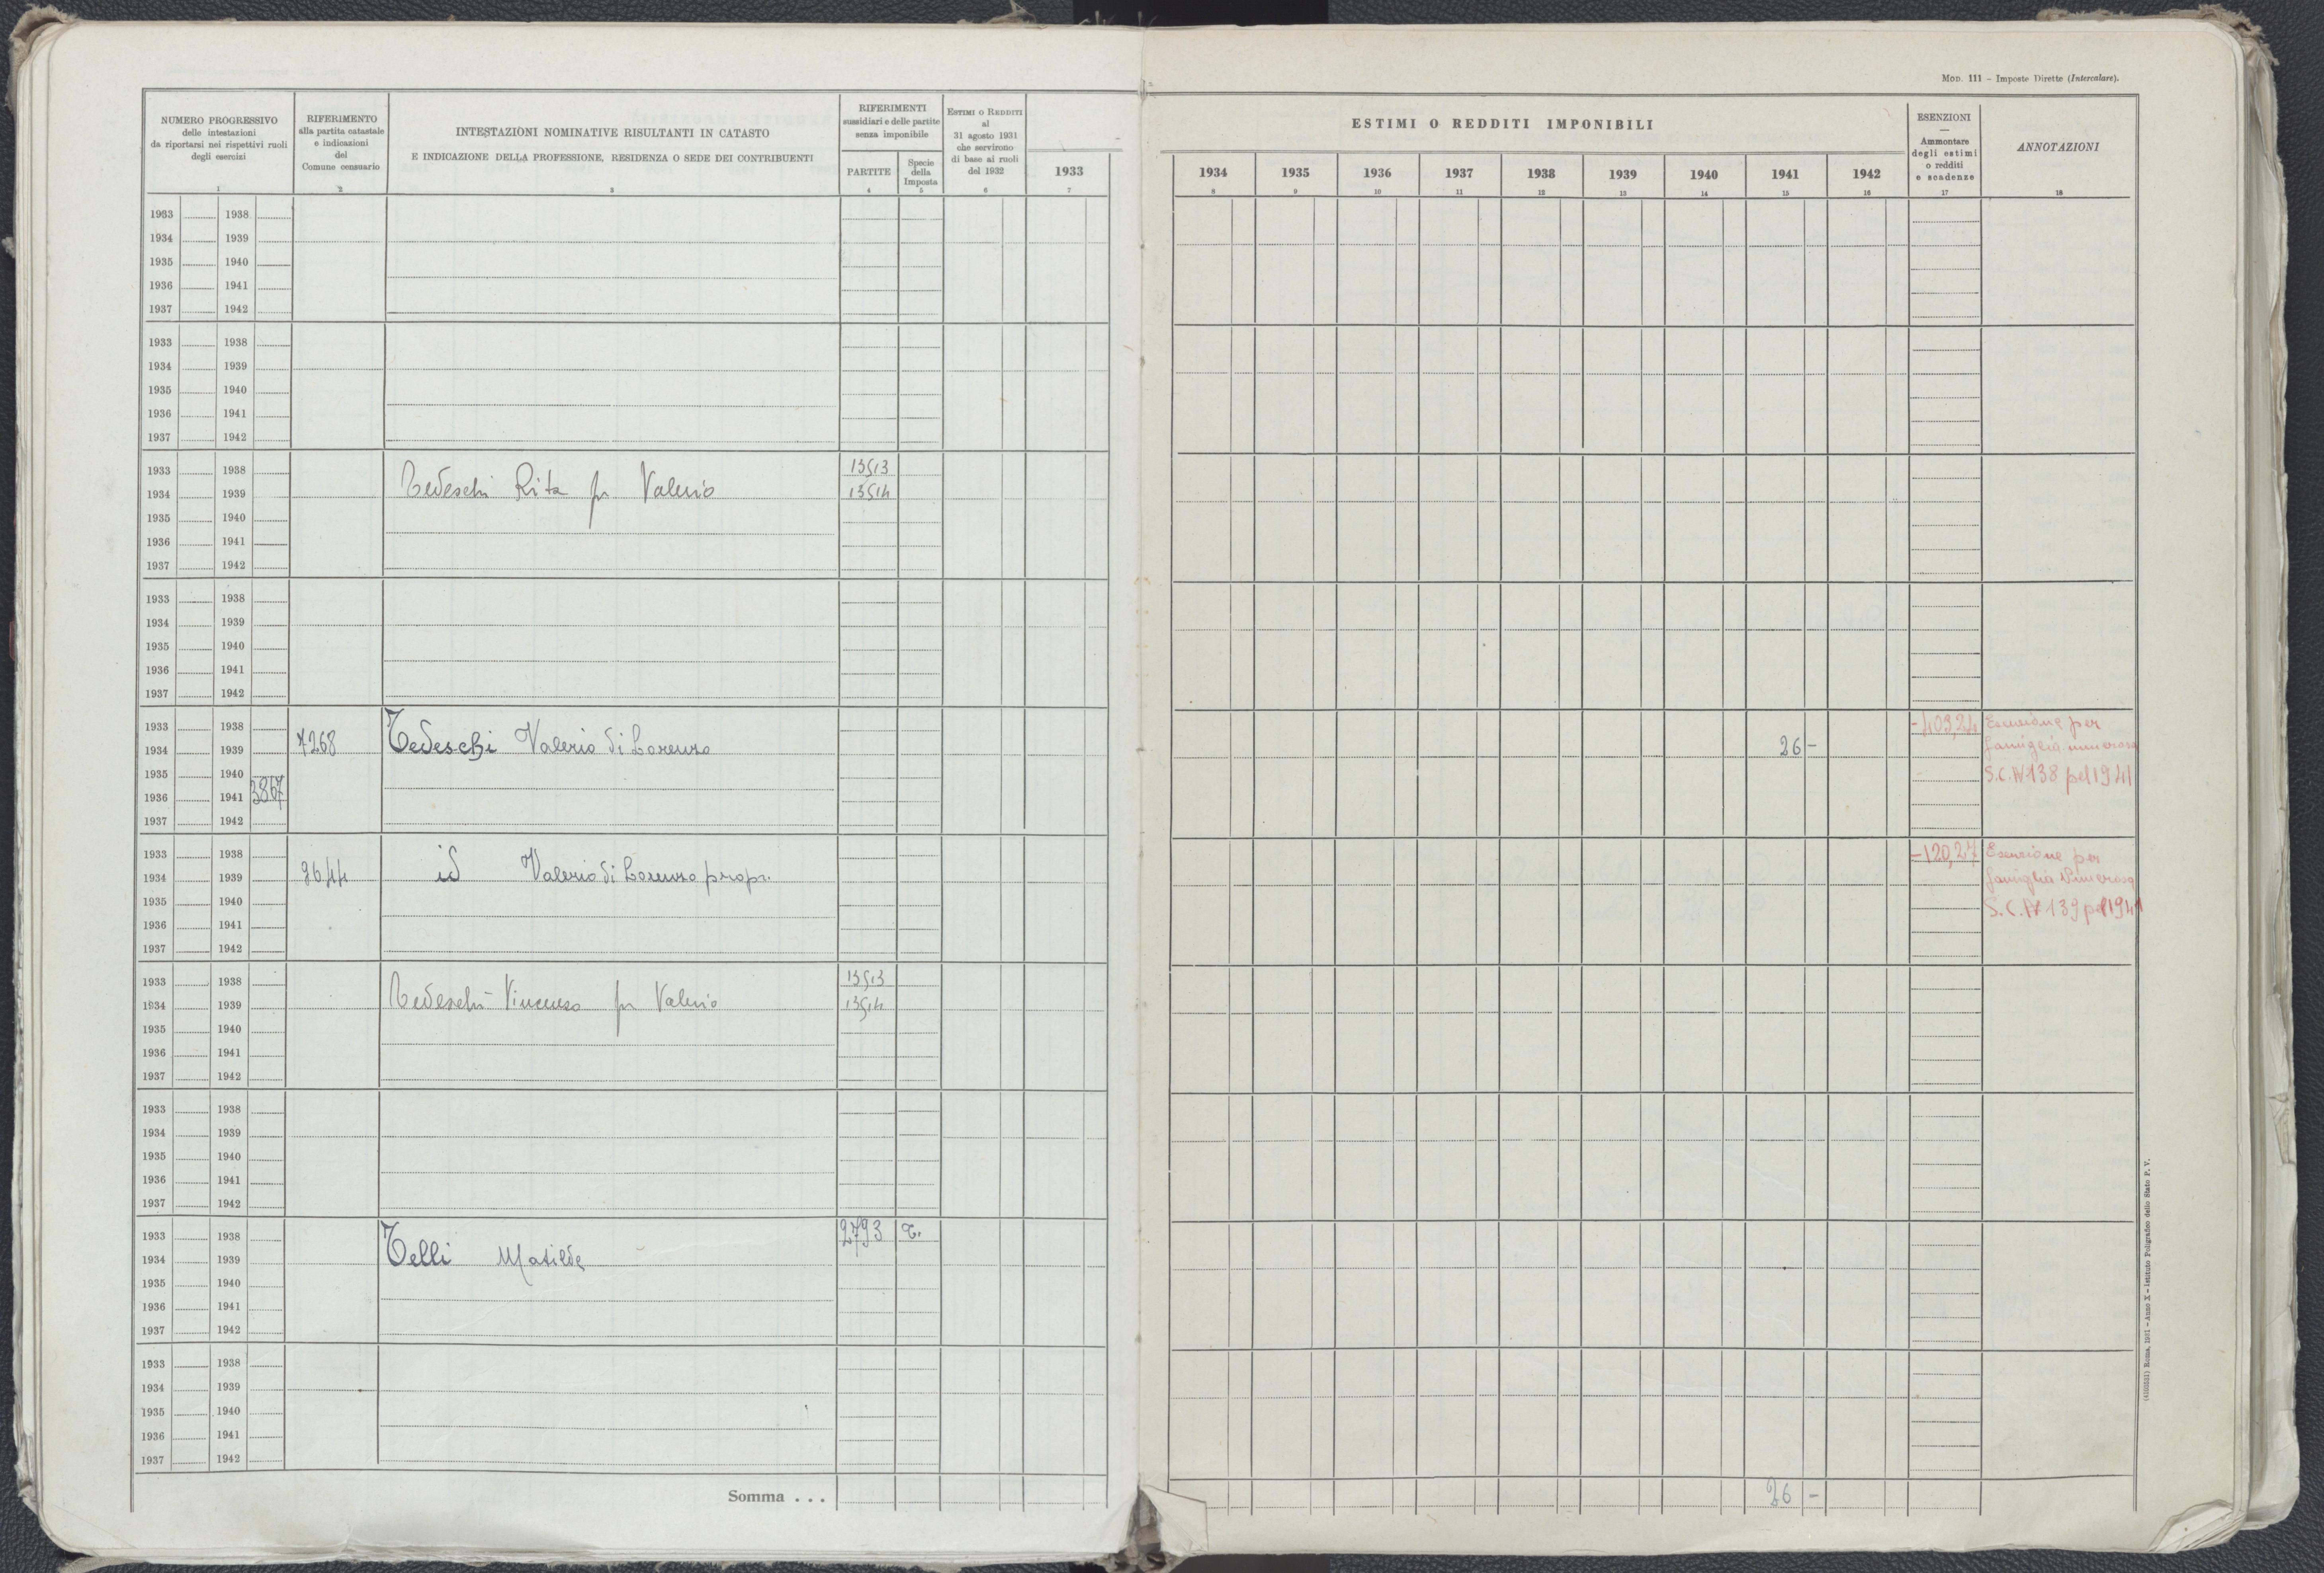 MOD. 111 - Imposte Dirette (Intercalare).
NUMERO PROGRESSIVO
delle intestazioni
da riportarsi nei rispettivi ruoli
degli esercizi
1
RIFERIMENTO
alla partita catastale
e indicazioni
del
Comune censuario
2
INTESTAZIONI NOMINATIVE RISULTANTI IN CATASTO
E INDICAZIONE DELLA PROFESSIONE, RESIDENZA O SEDE DEI CONTRIBUENTI
3
RIFERIMENTI
sussidiari e delle partite
senza imponibile
PARTITE
4
Specie
della
Imposta
5
ESTIMI O REDDITI
al
31 agosto 1931
che servirono
di base ai ruoli
del 1932
6
1933
7
ESTIMI O REDDITI IMPONIBILI
1934 1935 1936 1937 1938 1939 1940 1941 1942
8 9 10 11 12 13 14 15 16
ESENZIONI
—
Ammontare
degli estimi
o redditi
e scadenze
17
ANNOTAZIONI
18
1933 1938
1934 1939
1935 1940
1936 1941
1937 1942
1933 1938
1934 1939
1935 1940
1936 1941
1937 1942
1933 1938 13513
1934 1939 Tedeschi Rita fu Valerio 13514
1935 1940
1936 1941
1937 1942
1933 1938
1934 1939
1935 1940
1936 1941
1937 1942
1933 1938 -403,24 Esenzione per
1934 1939 7268 Tedeschi Valerio di Lorenzo 26 - famiglia numerosa
1935 1940 S.C.N 138 pel 1941
1936 1941 3867
1937 1942
1933 1938 -120,27 Esenzione per
1934 1939 9644 id Valerio di Lorenzo propr. famiglia Numerosa
1935 1940 S.C.N 139 pel 1941
1936 1941
1937 1942
1933 1938 13513
1934 1939 Tedeschi Vincenzo fu Valerio 13514
1935 1940
1936 1941
1937 1942
1933 1938
1934 1939
1935 1940
1936 1941
1937 1942
1933 1938 2793 T.
1934 1939 Telli Matilde
1935 1940
1936 1941
1937 1942
1933 1938
1934 1939
1935 1940
1936 1941
1937 1942
Somma . . . 26 -
Roma, 1931 - Anno X - Istituto Poligrafico dello Stato P. V.